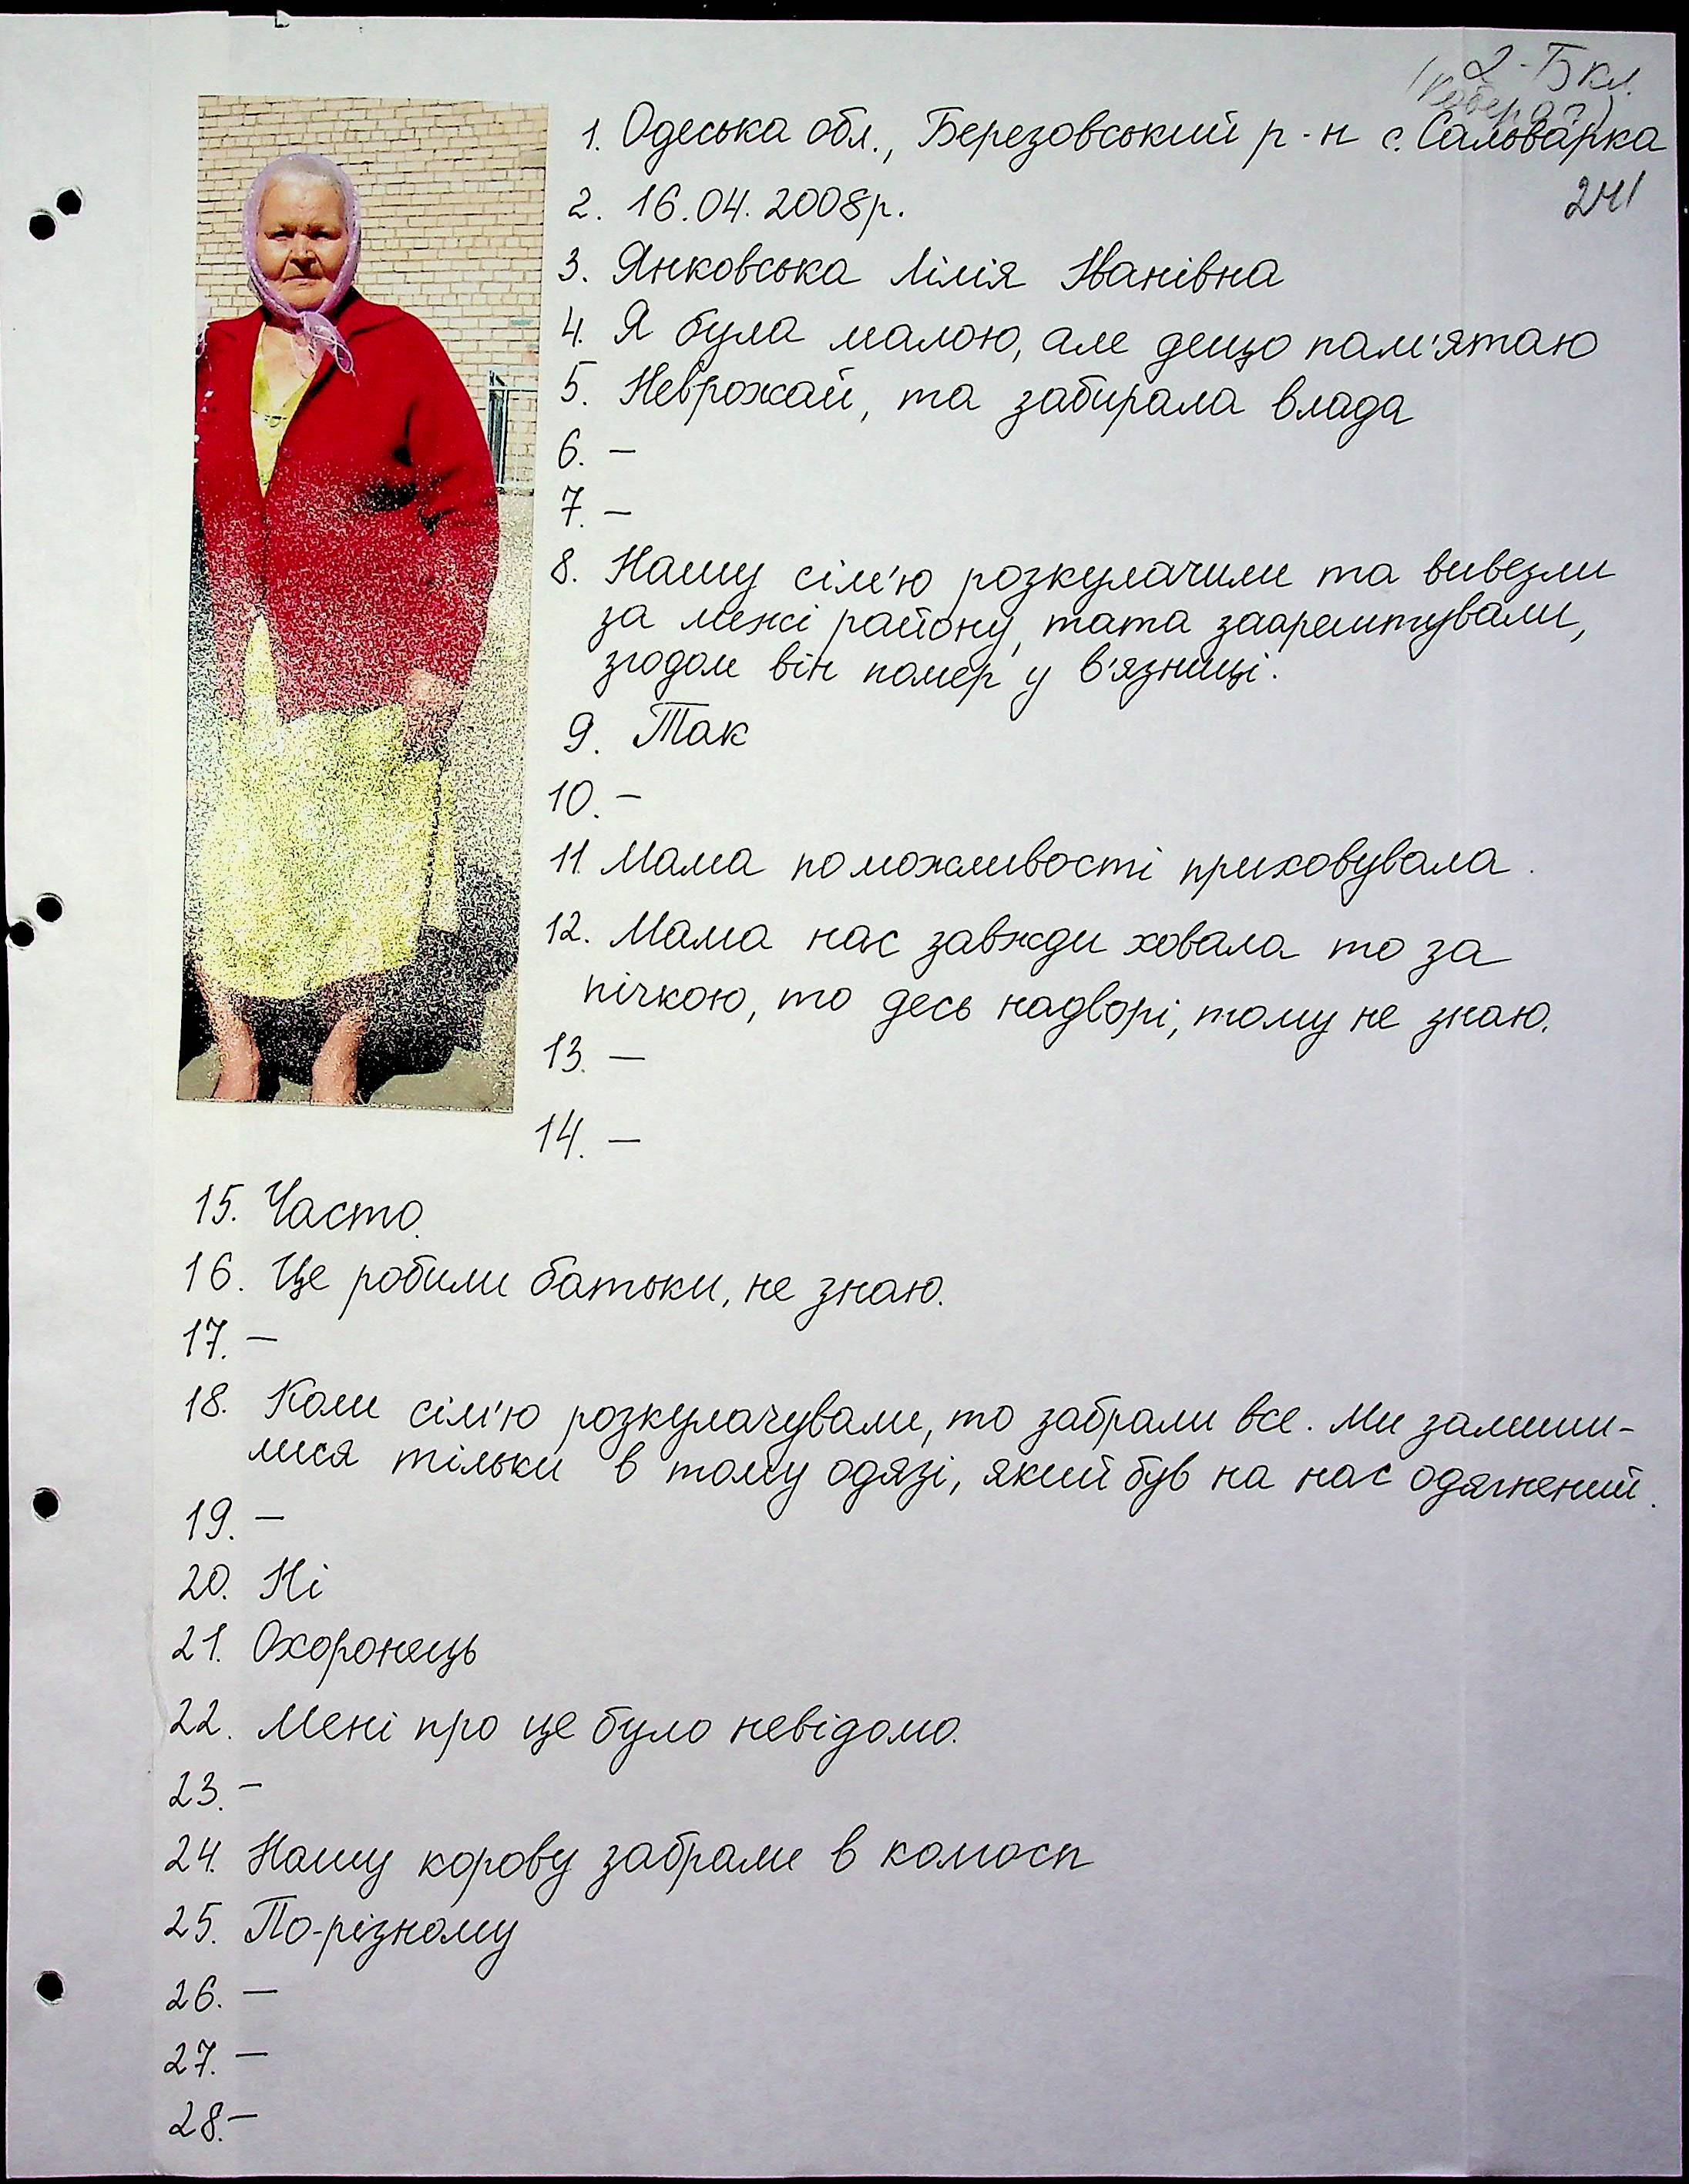 2-Б кл.
1. Одеська обл., Березовський р-н с. Сальварка
241
2. 16.04.2008р.
3. Янковська Лілія Іванівна
4. Я була малою, але дещо пам'ятаю
5. Неврожай, та забирала влада
6. —
7. —
8. Нашу сім'ю розкулачили та вивезли
за межі району, тата заарештували,
згодом він помер у в'язниці.
9. Так
10. —
11. Мама по можливості приховувала.
12. Мама нас завжди ховала то за
пічкою, то десь надворі, тому не знаю.
13. —
14. —
15. Часто.
16. Це робили батьки, не знаю.
17. —
18. Коли сім'ю розкулачували, то забрали все. Ми залиши-
лися тільки в тому одязі, який був на нас одягнений.
19. —
20. Ні
21. Охоронець
22. Мені про це було невідомо.
23. —
24. Нашу корову забрали в колгосп
25. По-різному
26. —
27. —
28. —